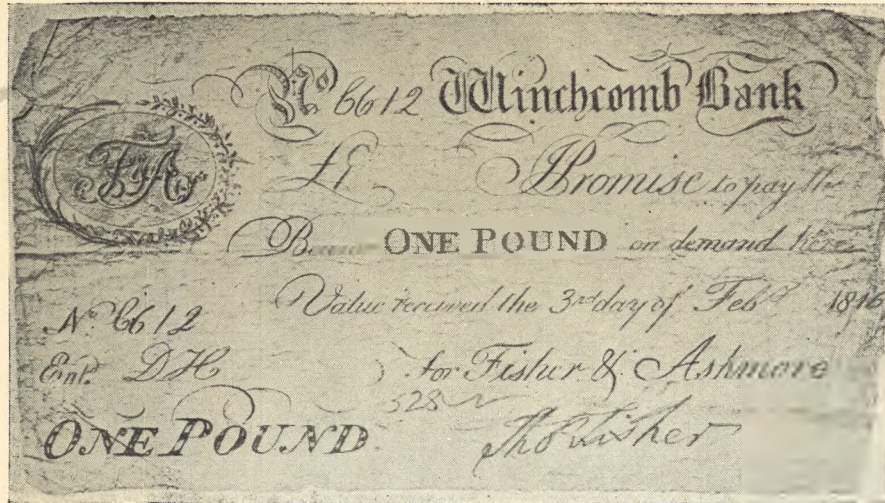 No 6612 Winchcomb Bank
F & A
£1 I Promise to pay the
ONE POUND on demand here
Value received the 3rd day of Feby 1816
No 6612
Ent. DH for Fisher & Ashmore
528
ONE POUND Thos Fisher